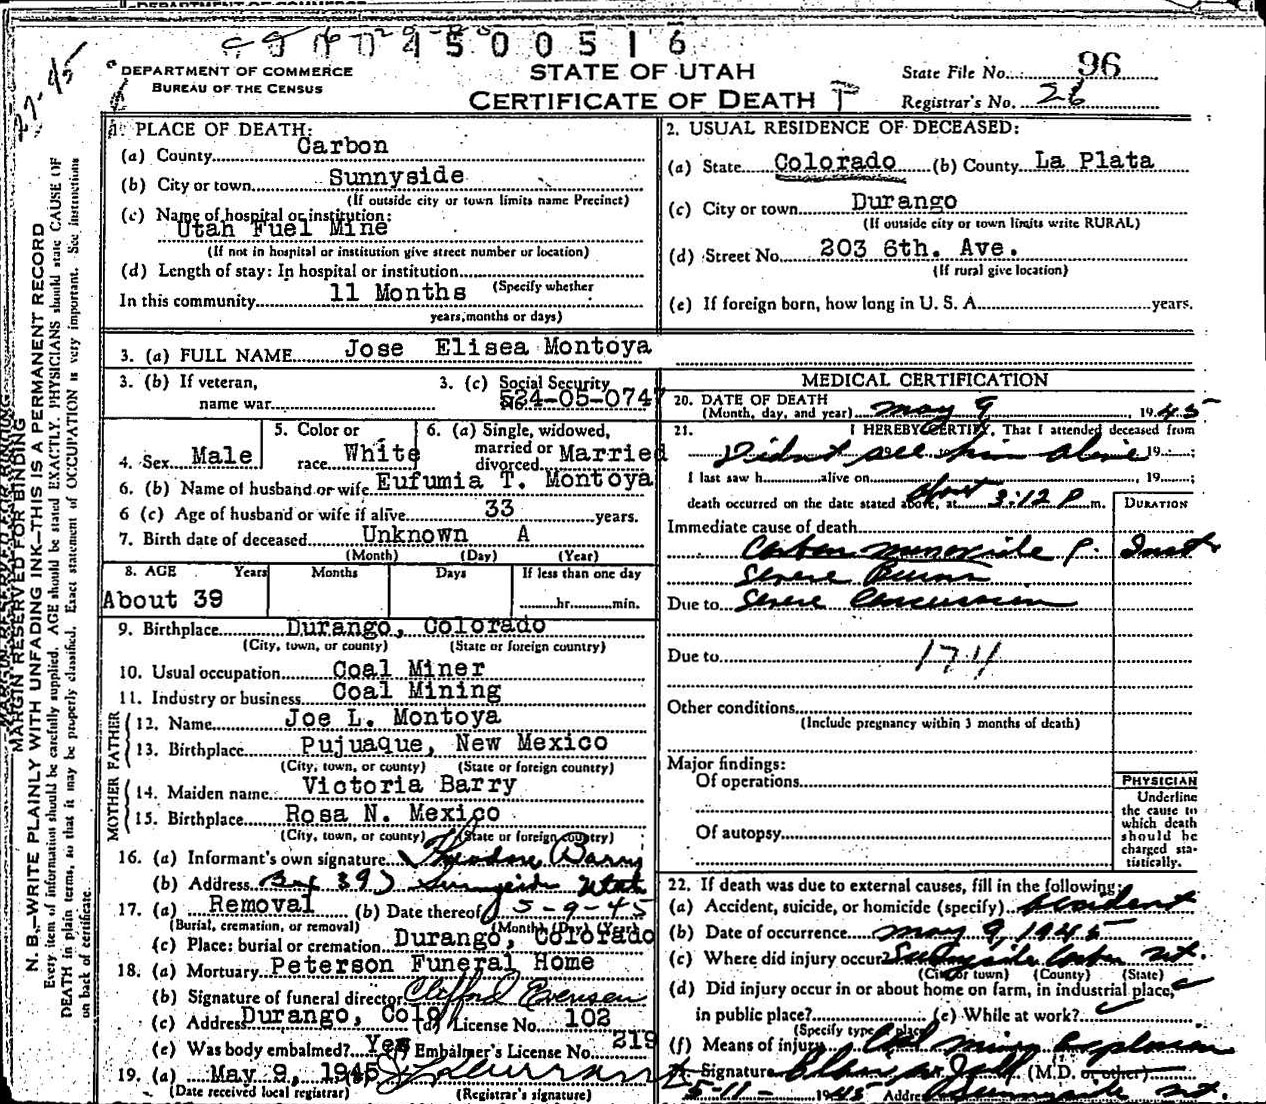 DEPARTMENT OF COMMERCE
BUREAU OF THE CENSUS
4500516
STATE OF UTAH
CERTIFICATE OF DEATH
State File No. 96
Registrar's No. 26
1. PLACE OF DEATH:
(a) County Carbon
(b) City or town Sunnyside
(If outside city or town limits name Precinct)
(c) Name of hospital or institution:
Utah Fuel Mine
(If not in hospital or institution give street number or location)
(d) Length of stay: In hospital or institution
(Specify whether
In this community 11 Months
years, months or days)
2. USUAL RESIDENCE OF DECEASED:
(a) State Colorado (b) County La Plata
(c) City or town Durango
(If outside city or town limits write RURAL)
(d) Street No. 203 6th. Ave.
(If rural give location)
(e) If foreign born, how long in U. S. A. years.
3. (a) FULL NAME Jose Elisea Montoya
3. (b) If veteran, name war
3. (c) Social Security No. 524-05-0747
4. Sex Male
5. Color or race White
6. (a) Single, widowed, married or divorced Married
6. (b) Name of husband or wife Eufumia T. Montoya
6 (c) Age of husband or wife if alive 33 years.
7. Birth date of deceased Unknown A
(Month) (Day) (Year)
8. AGE Years Months Days If less than one day
About 39 hr. min.
9. Birthplace Durango, Colorado
(City, town, or county) (State or foreign country)
10. Usual occupation Coal Miner
11. Industry or business Coal Mining
FATHER
12. Name Joe L. Montoya
13. Birthplace Pujuaque, New Mexico
(City, town, or county) (State or foreign country)
MOTHER
14. Maiden name Victoria Barry
15. Birthplace Rosa N. Mexico
(City, town, or county) (State or foreign country)
16. (a) Informant's own signature Theodore Barry
(b) Address Box 397 Sunnyside Utah
17. (a) Removal (b) Date thereof 5-9-45
(Burial, cremation, or removal) (Month) (Day) (Year)
(c) Place: burial or cremation Durango, Colorado
18. (a) Mortuary Peterson Funeral Home
(b) Signature of funeral director Clifford Evensen
(c) Address Durango, Colo (d) License No. 102
(e) Was body embalmed? Yes (f) Embalmer's License No. 219
19. (a) May 9, 1945 (b)
(Date received local registrar) (Registrar's signature)
MEDICAL CERTIFICATION
20. DATE OF DEATH
(Month, day, and year) May 9, 1945
21. I HEREBY CERTIFY, That I attended deceased from
Didn't see him alive 19 ;
I last saw h alive on , 19 ;
death occurred on the date stated above, at about 3:12 P m.
DURATION
Immediate cause of death
Carbon monoxide P. Inst
Severe Burns
Due to Severe Concussion
Due to 174
Other conditions
(Include pregnancy within 3 months of death)
Major findings:
Of operations
Of autopsy
PHYSICIAN
Underline
the cause to
which death
should be
charged sta-
tistically.
22. If death was due to external causes, fill in the following:
(a) Accident, suicide, or homicide (specify) accident
(b) Date of occurrence May 9, 1945
(c) Where did injury occur Sunnyside Carbon Ut.
(City or town) (County) (State)
(d) Did injury occur in or about home on farm, in industrial place,
in public place? (e) While at work?
(Specify type of place)
(f) Means of injury Coal mine Explosion
Signature (M.D. or other)
5-11-1945 Address Sunnyside Ut.
MARGIN RESERVED FOR BINDING
N. B.—WRITE PLAINLY WITH UNFADING INK—THIS IS A PERMANENT RECORD
Every item of information should be carefully supplied. AGE should be stated EXACTLY. PHYSICIANS should state CAUSE OF
DEATH in plain terms, so that it may be properly classified. Exact statement of OCCUPATION is very important. See instructions
on back of certificate.